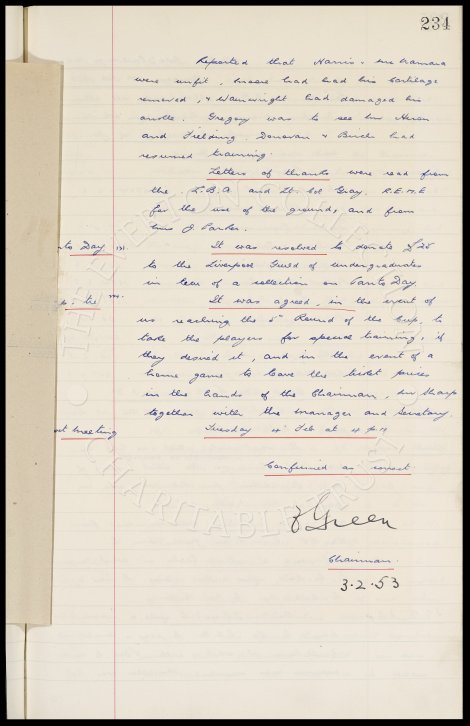 234
Reported that Harris & McNamara
were unfit, Moore had had his cartilage
removed, & Wainwright had damaged his
ankle. Gregory was to see Mr Heron
and Fielding, Donovan & Birch had
resumed training.
Letters of thanks were read from
the L.B.A. and Lt. Col Gray. R.E.M.E
for the use of the ground, and from
Miss J Parker.
nto Day. It was resolved to donate £25
to the Liverpool Guild of Undergraduates
in lieu of a collection on Panto Day
p: tie It was agreed, in the event of
us reaching the 5th Round of the Cup, to
take the players for special training, if
they desired it, and in the event of a
home game to leave the ticket prices
in the hands of the Chairman, Mr Sharp
together with the manager and Secretary.
xt meeting Tuesday Feb at 4 pm
Confirmed as correct
Green
Chairman.
3.2.53
THE EVERTON COLLECTION
© CHARITABLE TRUST